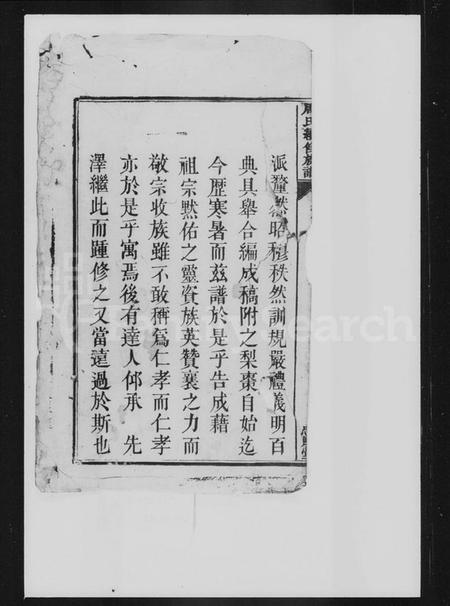 氏續修族譜
派釐然昭穆秩然訓規嚴禮義明百
典具舉合編成稿附之梨棗自始迄
今歷寒暑而茲譜於是乎告成藉
祖宗默佑之靈資族英贊襄之力而
敬宗收族雖不敢稱爲仁孝而仁孝
亦於是乎寓焉後有達人仰承 先
澤繼此而踵修之又當遠過於斯也